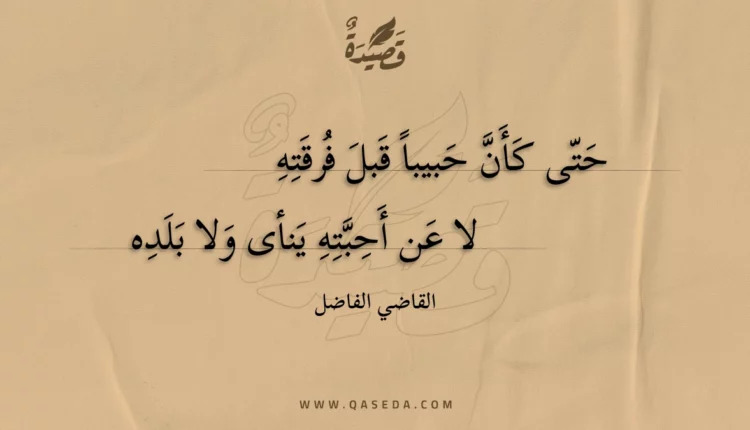 قَصِيدَةٌ
حَتّى كَأَنَّ حَبيباً قَبلَ فُرقَتِهِ
لا عَن أَحِبَّتِهِ يَنأى وَلا بَلَدِه
القاضي الفاضل
WWW.QASEDA.COM